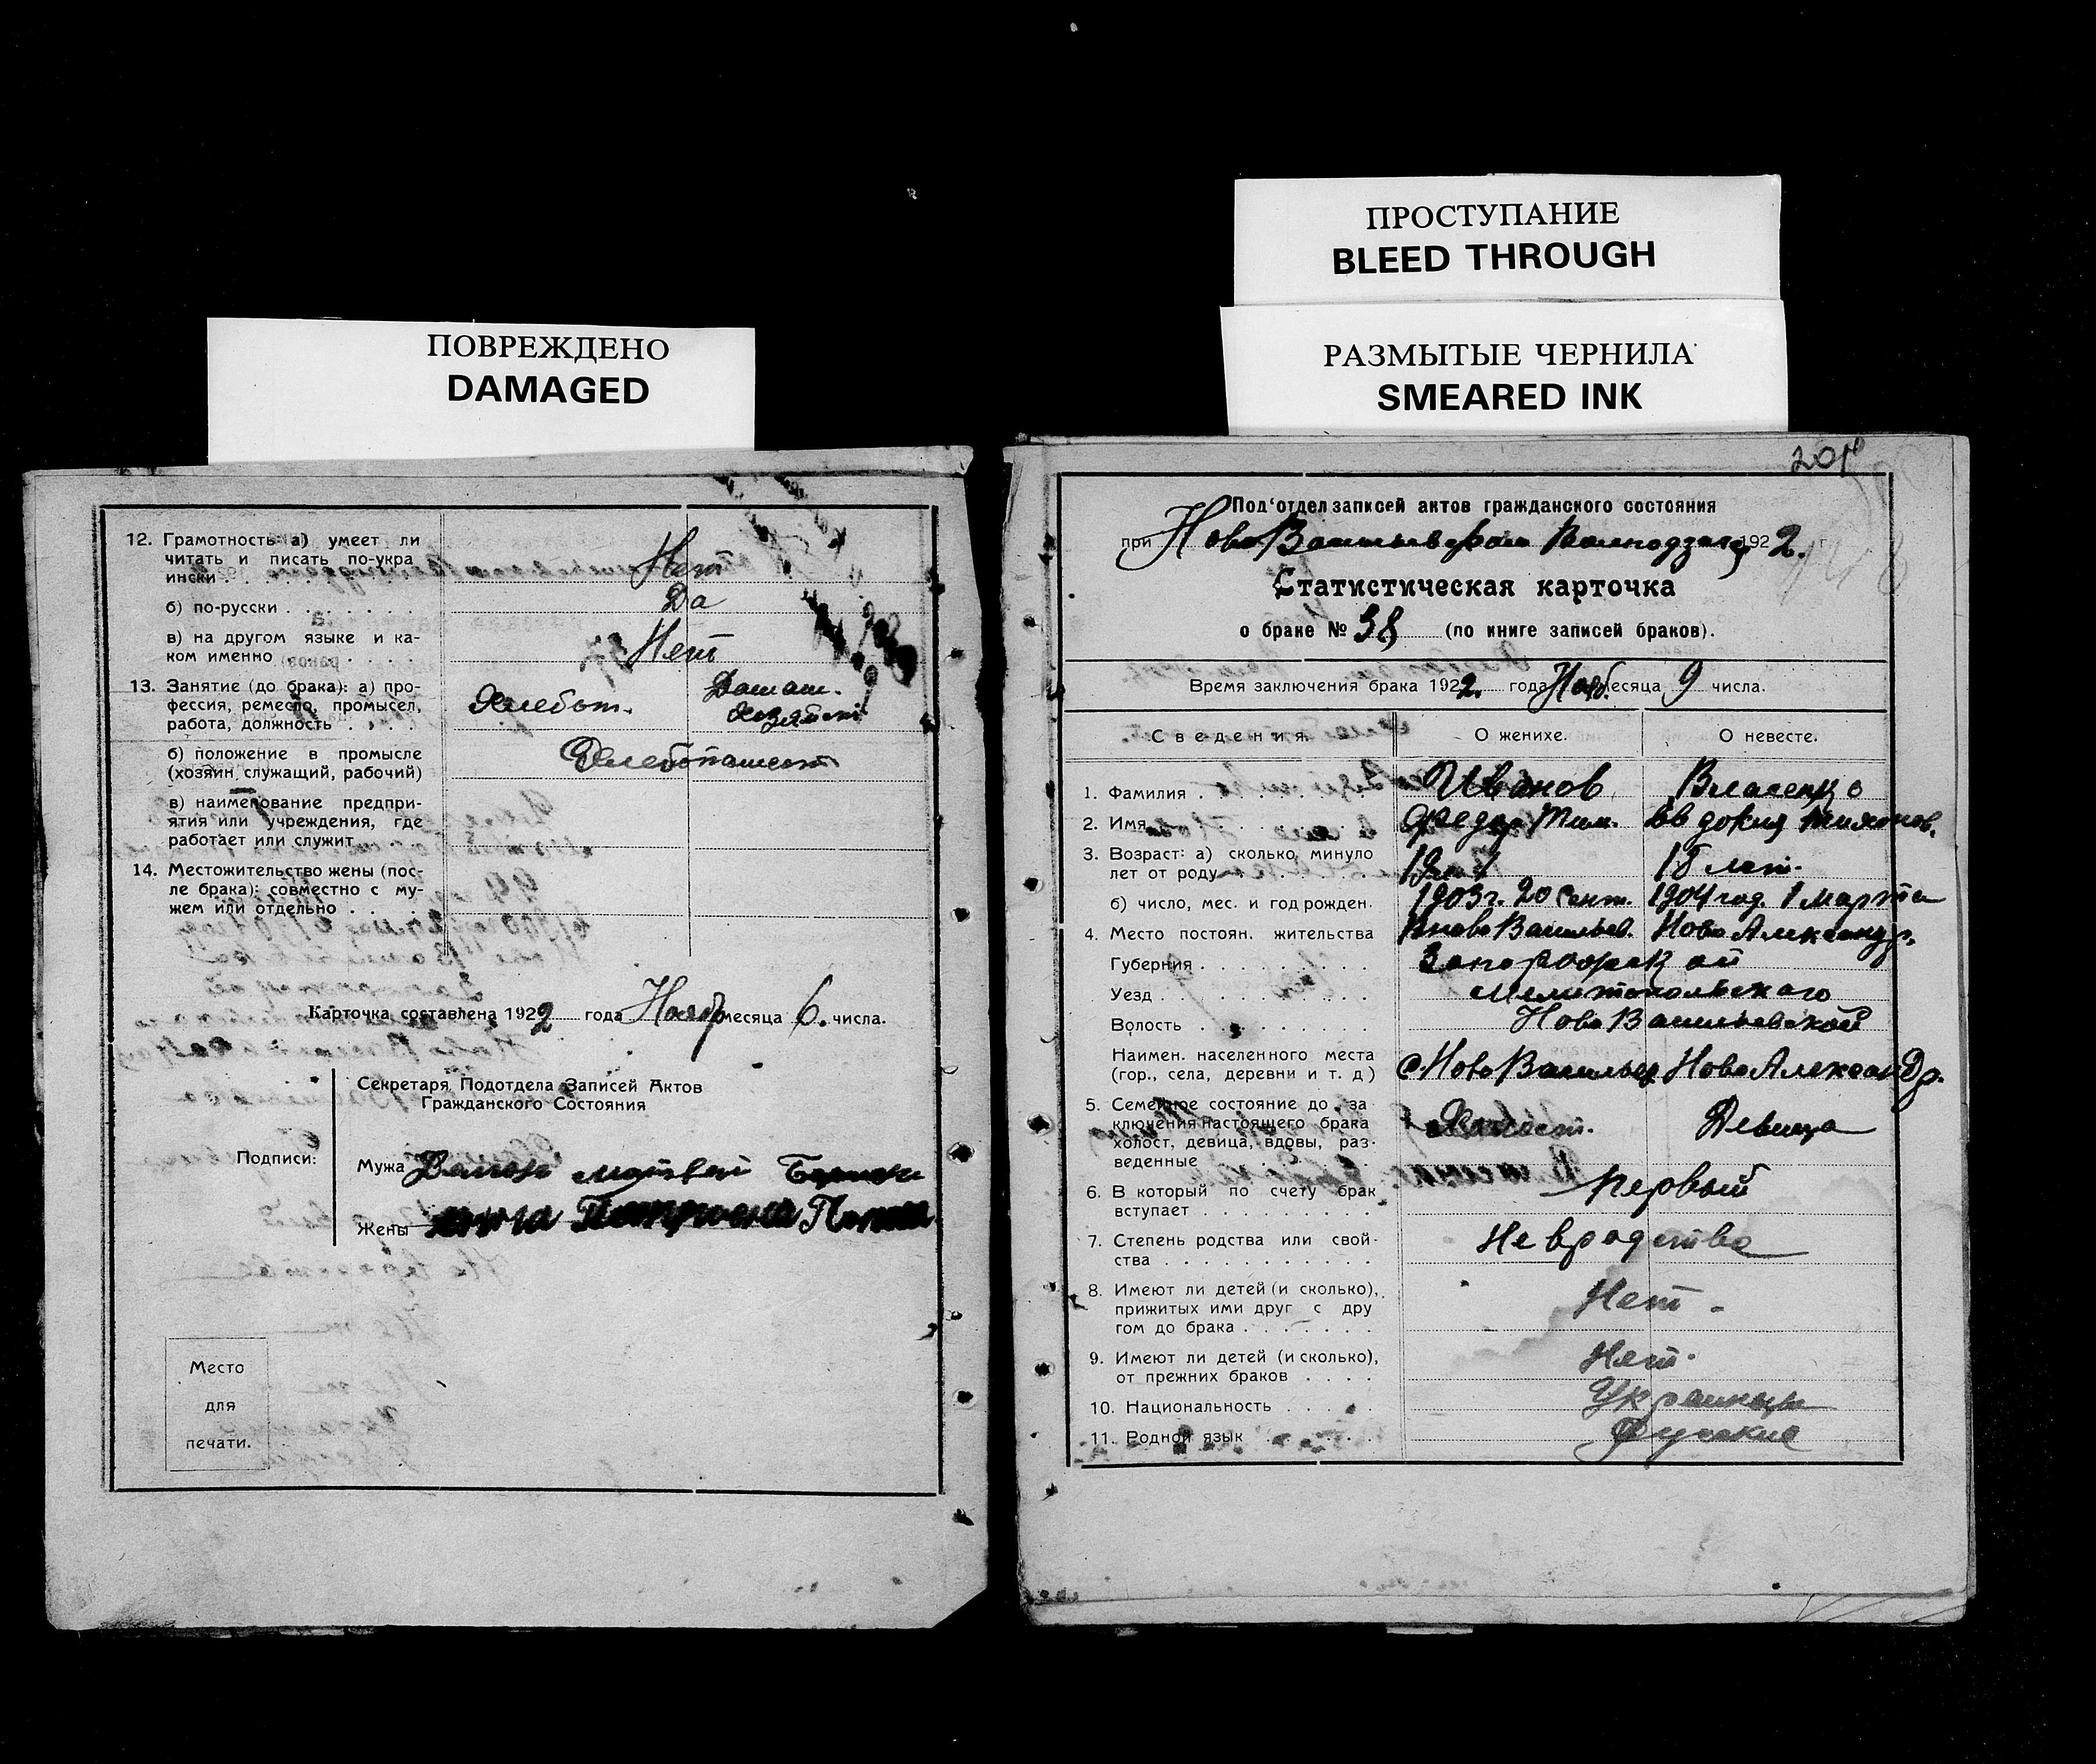 ПОВРЕЖДЕНО
DAMAGED
12. Грамотность а) умеет ли
читать и писать по-укра
ински . Нет
б) по-русски . . . . . . . Да
в) на другом языке и ка-
ком именно . . . . Нет
13. Занятие (до брака): а) про-
фессия, ремесло, промысел,
работа, должность . . . . Хлебоп. Домаш. хозяйст.
б) положение в промысле
(хозяин, служащий, рабочий) Хлебопашест
в) наименование предпри-
ятия или учреждения, где
работает или служит
14. Местожительство жены (пос-
ле брака): совместно с му-
жем или отдельно . . . .
Карточка составлена 1922 года Нояб месяца 6. числа.
Секретаря Подотдела Записей Актов
Гражданского Состояния
Подписи:
Мужа Матвей
Жены Петровна
Место
для
печати.
ПРОСТУПАНИЕ
BLEED THROUGH
РАЗМЫТЫЕ ЧЕРНИЛА
SMEARED INK
Под'отдел записей актов гражданского состояния
при Ново Васильевском 1922. г
Статистическая карточка
о браке № 38 (по книге записей браков).
Время заключения брака 1922. года Нояб. месяца 9 числа.
Сведения. О женихе. О невесте.
1. Фамилия . Иванов Власенко
2. Имя . Федор Тим. Евдокия Тихонов.
3. Возраст: а) сколько минуло
лет от роду 19 л. 18 лет.
б) число, мес. и год рожден. 1903 г. 20 Сент. 1904 год. 1 Марта
4. Место постоян. жительства Ново Васильев. Ново Александр.
Губерния . . . . . . . . . Запорожской
Уезд . . . . . . . . . . . Мелитопольскаго
Волость . . . . . . . . . Ново Васильевской
Наимен. населенного места
(гор., села, деревни и т. д) с. Ново Васильев Ново Александр.
5. Семейное состояние до за
ключения настоящего брака
холост, девица, вдовы, раз-
веденные . . . . . Холост. Девица
6. В который по счету брак
вступает . . . . . . . . . первый
7. Степень родства или свой-
ства . . . . . . . . . . . Не вродстве
8. Имеют ли детей (и сколько),
прижитых ими друг с дру
гом до брака . . . . . . . Нет -
9. Имеют ли детей (и сколько),
от прежних браков . . . . Нет.
10. Национальность . . . . Украинцы
11. Родной язык . . . . . . Руские